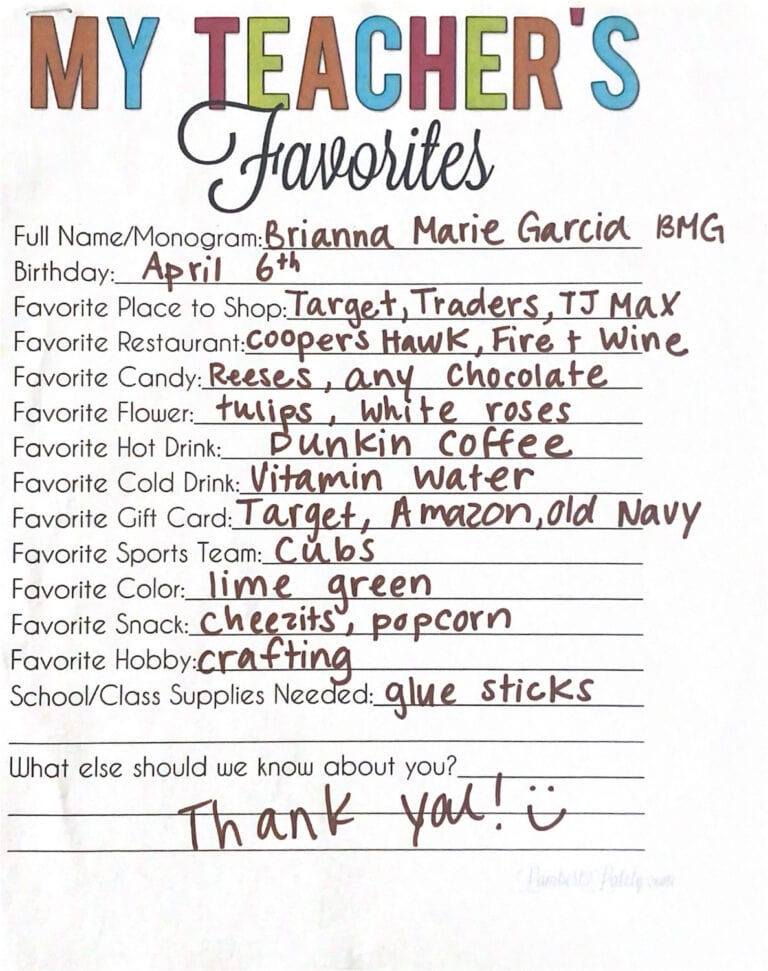 MY TEACHER'S
Favorites
Full Name/Monogram: Brianna Marie Garcia BMG
Birthday: April 6th
Favorite Place to Shop: Target, Traders, TJ Max
Favorite Restaurant: Coopers Hawk, Fire + Wine
Favorite Candy: Reeses, any chocolate
Favorite Flower: tulips, white roses
Favorite Hot Drink: Dunkin coffee
Favorite Cold Drink: Vitamin water
Favorite Gift Card: Target, Amazon, Old Navy
Favorite Sports Team: Cubs
Favorite Color: lime green
Favorite Snack: cheezits, popcorn
Favorite Hobby: crafting
School/Class Supplies Needed: glue sticks
What else should we know about you?
Thank you!